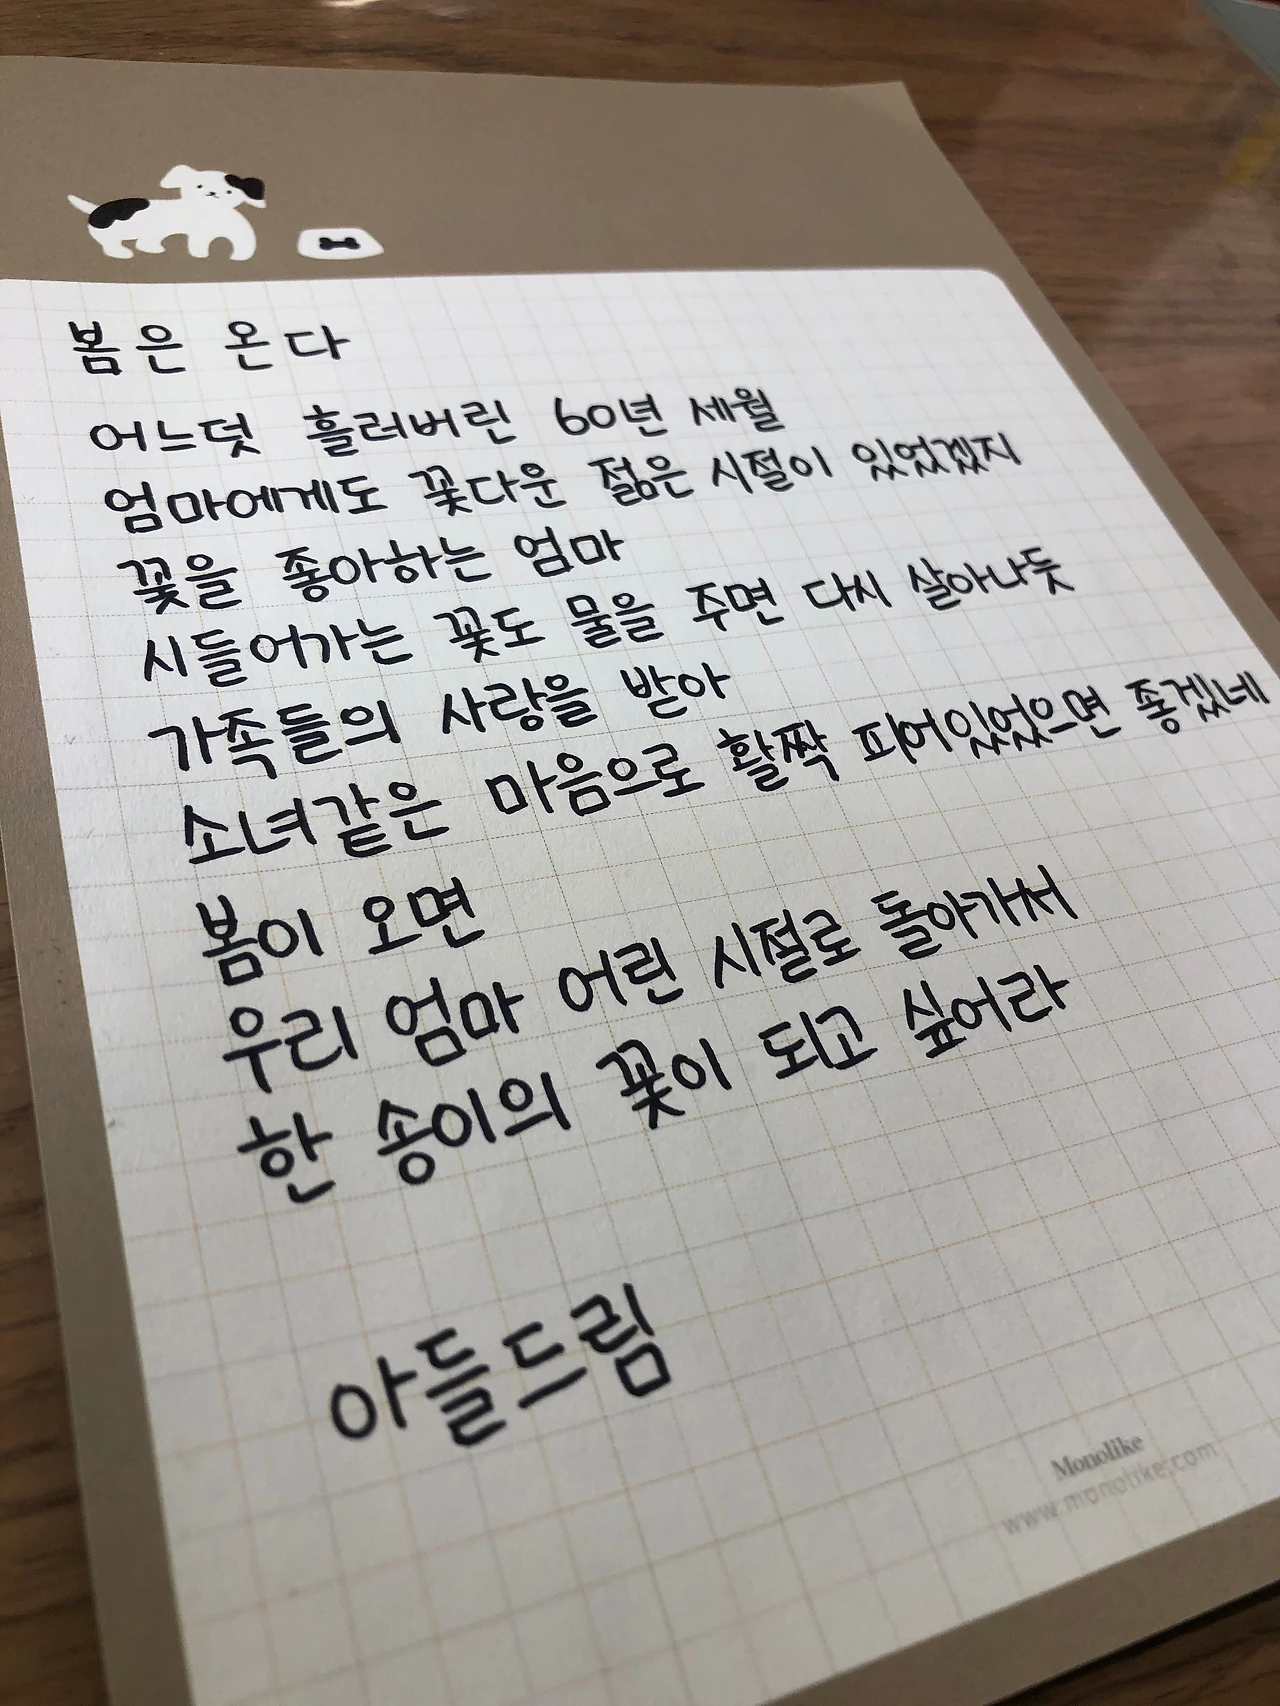 봄은 온다
어느덧 흘러버린 60년 세월
엄마에게도 꽃다운 젊은 시절이 있었겠지
꽃을 좋아하는 엄마
시들어가는 꽃도 물을 주면 다시 살아나듯
가족들의 사랑을 받아
소녀같은 마음으로 활짝 피어있었으면 좋겠네
봄이 오면
우리 엄마 어린 시절로 돌아가서
한 송이의 꽃이 되고 싶어라
아들드림
Monolike
www.monolike.com